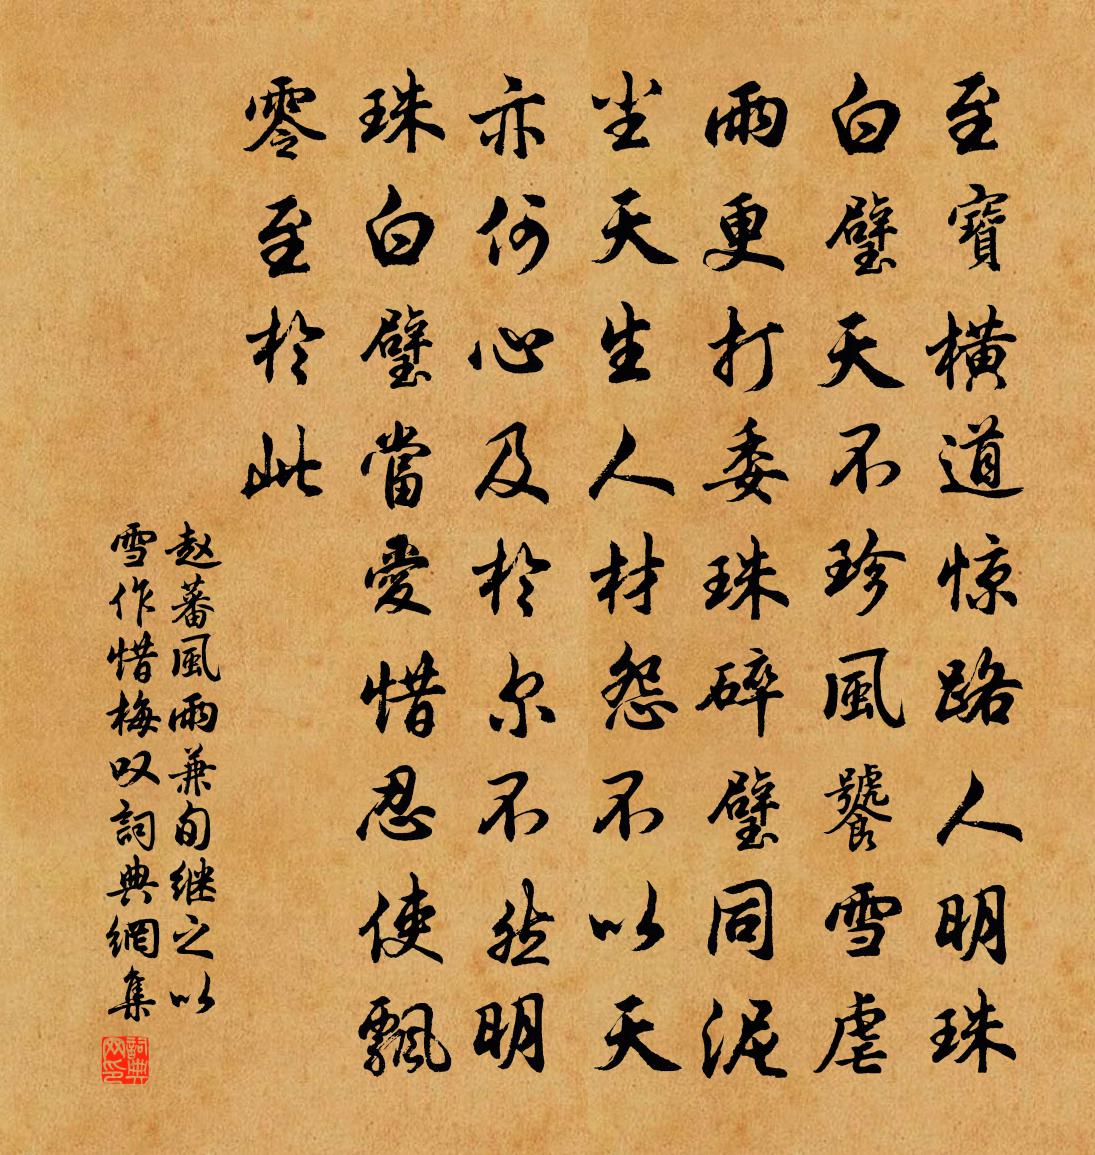 至寶橫道惊路人明珠
白璧天不珍風饕雪虐
雨更打委珠碎璧同泥
坐天生人材怨不以天
亦何心及於尔不然明
珠白璧當愛惜忍使飄
零至於此
赵蕃風雨兼旬继之以
雪作惜梅叹詞典網集
詞典网印